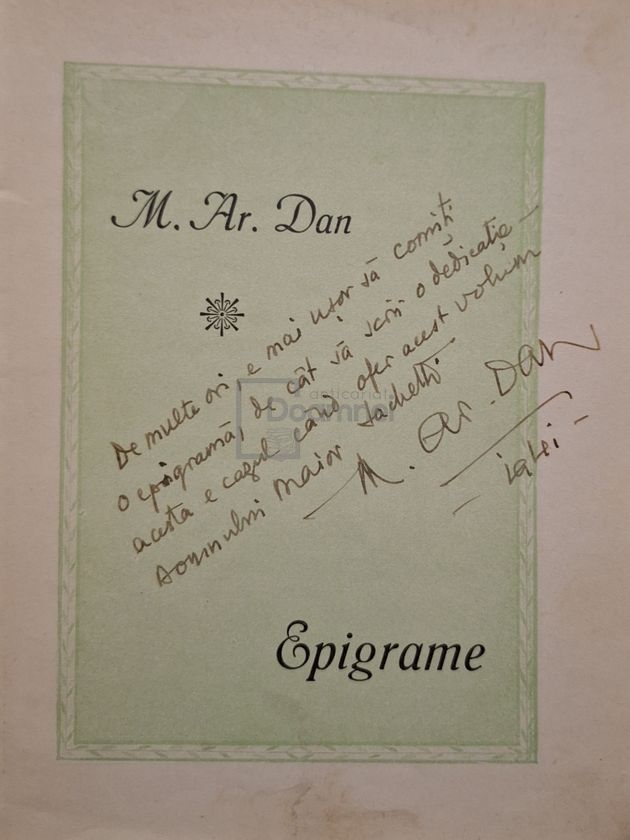 M. Ar. Dan
De multe ori, e mai ușor să comiți
o epigramă, de cât să scrii o dedicație –
acesta e cazul când ofer acest volum
Domnului Maior Sachetti
M. Ar. Dan
anticariat
Doamnei
Epigrame